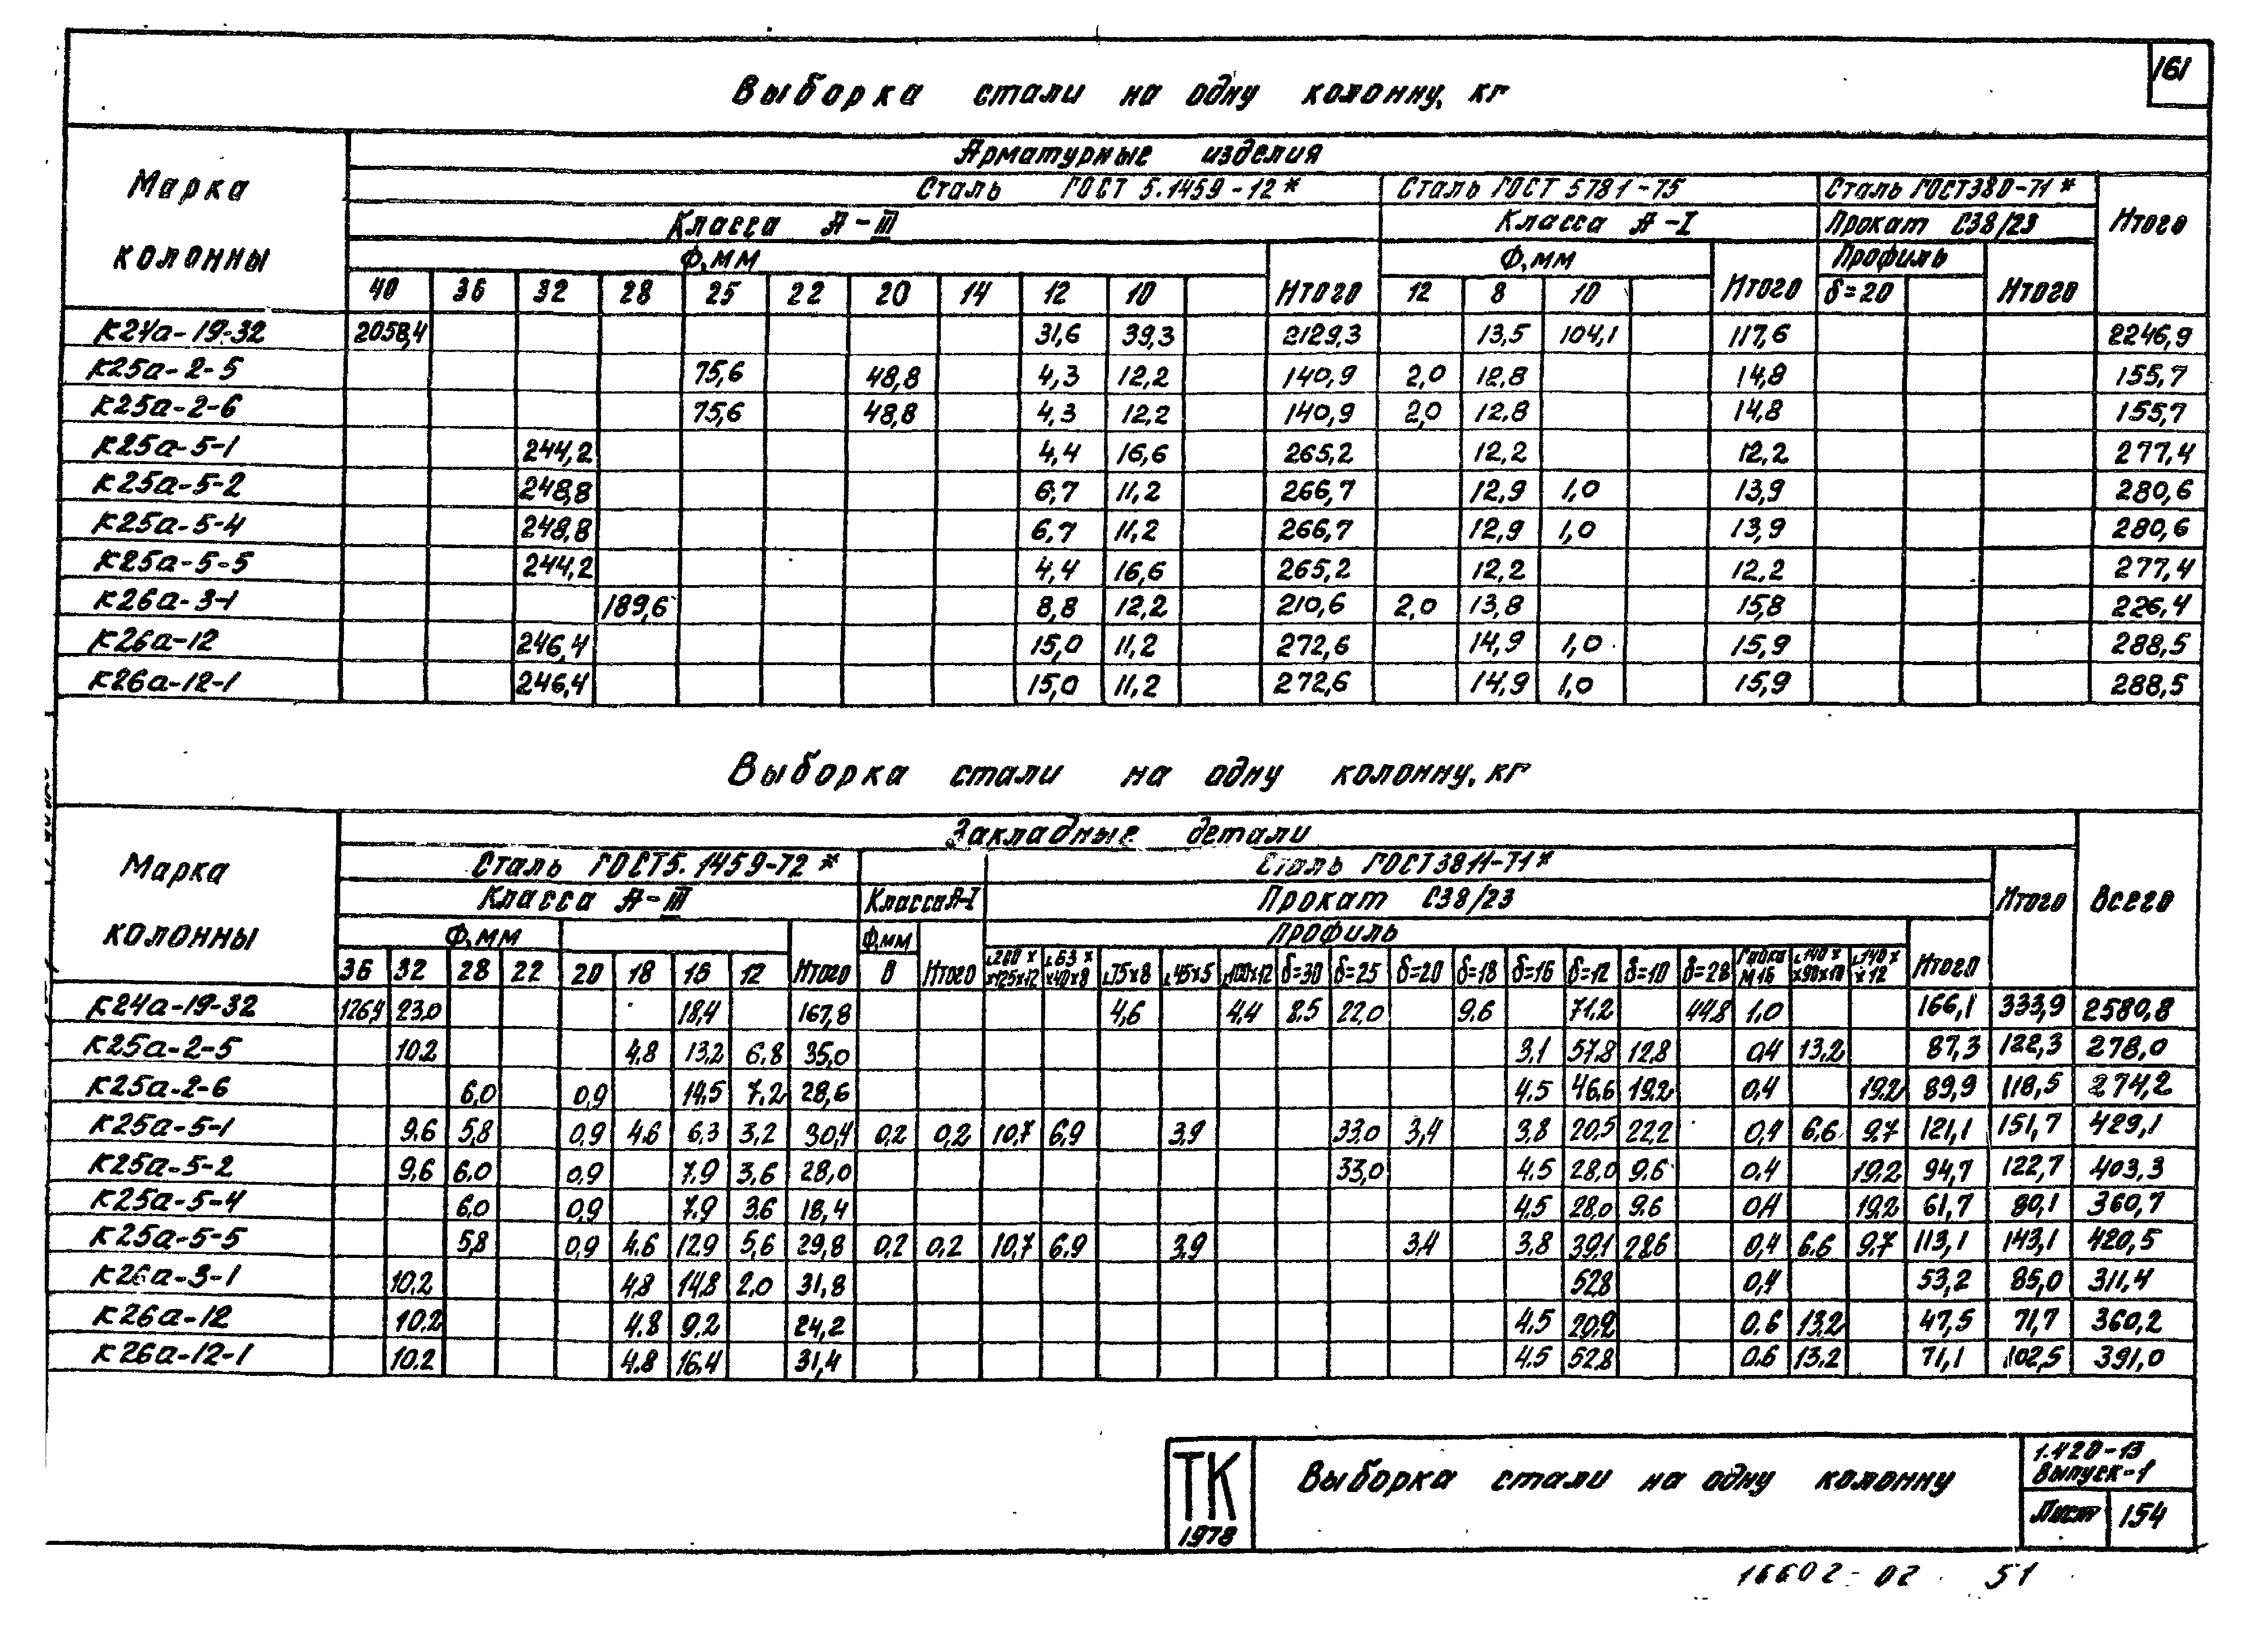 161
Выборка стали на одну колонну, кг
Марка колонны
Арматурные изделия
Сталь ГОСТ 5.1459-12* Сталь ГОСТ 5781-75 Сталь ГОСТ 380-71* Итого
Класса А-III Класса А-I Прокат С38/23
Ф, мм Итого Ф, мм Итого Профиль Итого
40 36 32 28 25 22 20 14 12 10 12 8 10 δ=20
К24а-19-32 2058,4 31,6 39,3 2129,3 13,5 104,1 117,6 2246,9
К25а-2-5 75,6 48,8 4,3 12,2 140,9 2,0 12,8 14,8 155,7
К25а-2-6 75,6 48,8 4,3 12,2 140,9 2,0 12,8 14,8 155,7
К25а-5-1 244,2 4,4 16,6 265,2 12,2 12,2 277,4
К25а-5-2 248,8 6,7 11,2 266,7 12,9 1,0 13,9 280,6
К25а-5-4 248,8 6,7 11,2 266,7 12,9 1,0 13,9 280,6
К25а-5-5 244,2 4,4 16,6 265,2 12,2 12,2 277,4
К26а-3-1 189,6 8,8 12,2 210,6 2,0 13,8 15,8 226,4
К26а-12 246,4 15,0 11,2 272,6 14,9 1,0 15,9 288,5
К26а-12-1 246,4 15,0 11,2 272,6 14,9 1,0 15,9 288,5
Выборка стали на одну колонну, кг
Марка колонны
Закладные детали
Сталь ГОСТ 5.1459-72* Сталь ГОСТ 3811-71* Итого Всего
Класса А-III Класса А-I Прокат С38/23
Ф, мм Ф, мм Профиль
36 32 28 22 20 18 16 12 Итого 8 Итого ∟200××125×12 ∟63××40×8 ∟75×8 ∟45×5 ∟100×12 δ=30 δ=25 δ=20 δ=18 δ=16 δ=12 δ=10 δ=28 Гайка М16 ∟140××90×10 ∟140××12 Итого
К24а-19-32 126,4 23,0 18,4 167,8 4,6 4,4 8.5 22,0 9.6 71,2 44,8 1,0 166,1 333,9 2580,8
К25а-2-5 10,2 4,8 13,2 6,8 35,0 3,1 57,8 12,8 0,4 13,2 87,3 122,3 278,0
К25а-2-6 6,0 0,9 14,5 7,2 28,6 4.5 46,6 19,2 0,4 19,2 89,9 118,5 274,2
К25а-5-1 9,6 5,8 0,9 4,6 6,3 3,2 30,4 0,2 0,2 10,7 6,9 3,9 33,0 3,4 3,8 20,5 22,2 0,4 6,6 9,7 121,1 151,7 429,1
К25а-5-2 9,6 6,0 0,9 7,9 3,6 28,0 33,0 4.5 28,0 9.6 0,4 19,2 94,7 122,7 403,3
К25а-5-4 6,0 0,9 7,9 3,6 18,4 4,5 28,0 9.6 0,4 19,2 61,7 80,1 360,7
К25а-5-5 5,8 0,9 4.6 12,9 5,6 29,8 0,2 0,2 10,7 6,9 3,9 3,4 3,8 39,1 28,6 0,4 6.6 9,7 113,1 143,1 420,5
К26а-3-1 10,2 4,8 14,8 2,0 31,8 52,8 0,4 53,2 85,0 311,4
К26а-12 10,2 4.8 9,2 24,2 4.5 20,2 0.6 13,2 47,5 71,7 360,2
К26а-12-1 10.2 4.8 16,4 31,4 4.5 52,8 0.6 13.2 71,1 102,5 391,0
ТК
1978
Выборка стали на одну колонну
1.420-13
Выпуск-1
Лист 154
16602-02 51